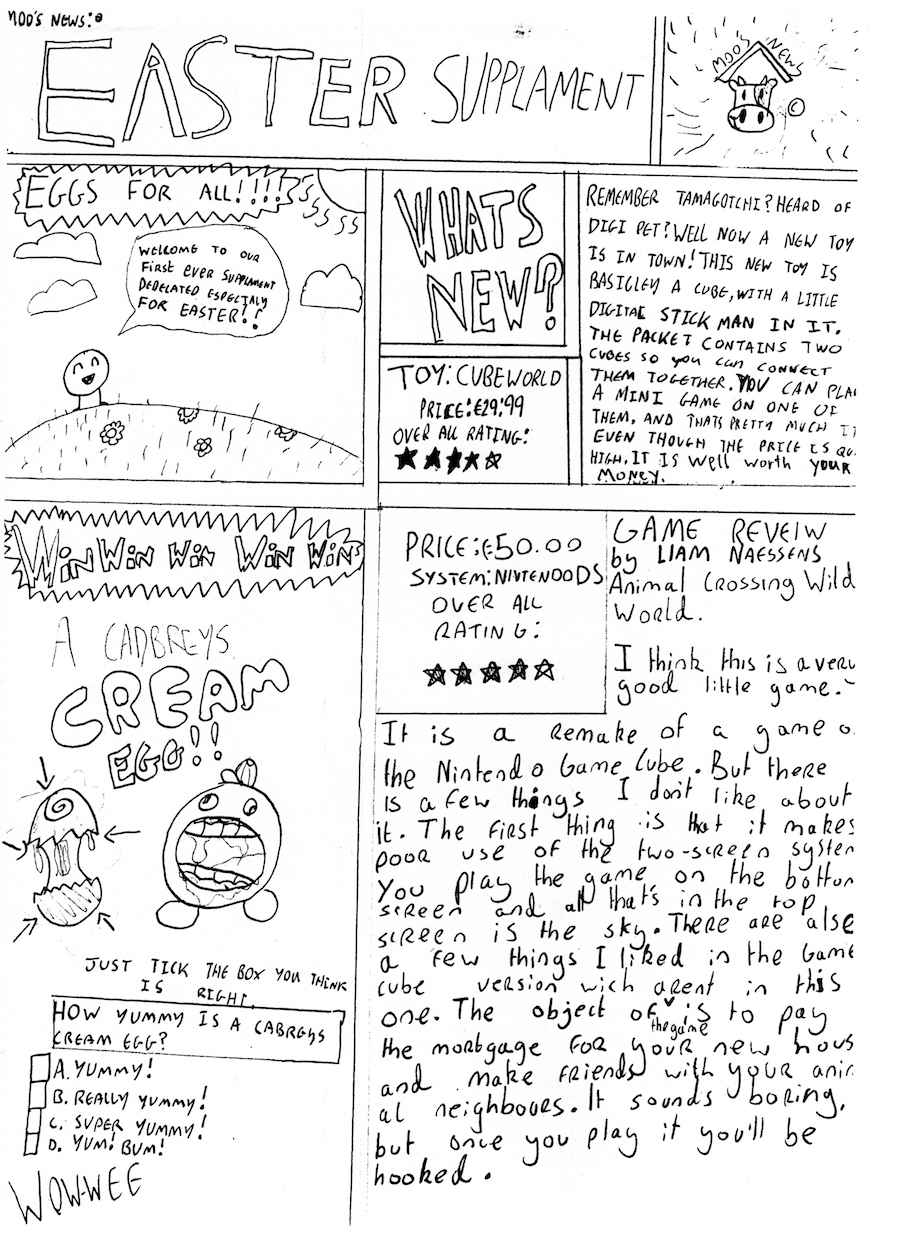 MOO'S NEWS:
EASTER SUPPLAMENT
MOO'S NEWS
©
EGGS FOR ALL!!!!
WELLOME TO OUR
First ever SUPPLAMENT
DEDELATED ESPECIALY
FOR EASTER!!
WHATS
NEW?
TOY: CUBEWORLD
PRICE: £29.99
OVER ALL RATING:
REMEMBER TAMAGOTCHI? HEARD OF
DIGI PET? WELL NOW A NEW TOY
IS IN TOWN! THIS NEW TOY IS
BASICLEY A CUBE, WITH A LITTLE
DIGITAL STICK MAN IN IT.
THE PACKET CONTAINS TWO
CUBES SO you can CONNECT
THEM TOGETHER. YOU CAN PLA
A MINI GAME ON ONE OF
THEM, AND THATS PRETTY MUCH IT
EVEN THOUGH THE PRICE IS QU
HIGH, IT IS WEll worth YOUR
MONEY.
WIN WIN WIN WIN WINS
A CADBREYS
CREAM
EGG!!
JUST TICK THE BOX YOU THINK
IS RIGHT.
HOW YUMMY IS A CABREYS
CREAM EGG?
A. YUMMY!
B. REALLY YUMMY!
C. SUPER YUMMY!
D. YUM! BUM!
WOW-WEE
PRICE: £50.00
SYSTEM: NINTENDO DS
OVER ALL
RATING:
GAME REVEIW
by LIAM NAESSENS
Animal Crossing Wild
World.
I think this is a very
good little game.
It is a remake of a game o
the Nintendo Game Cube. But there
is a few things I don't like about
it. The first thing is that it makes
poor use of the two-screen system
You play the game on the bottom
screen and all that's in the top
screen is the sky. There are also
a few things I liked in the Game
cube version wich arent in this
one. The object of the game is to pay
the mortgage for your new hous
and make friends with your anim
al neighbours. It sounds boring,
but once you play it you'll be
hooked.